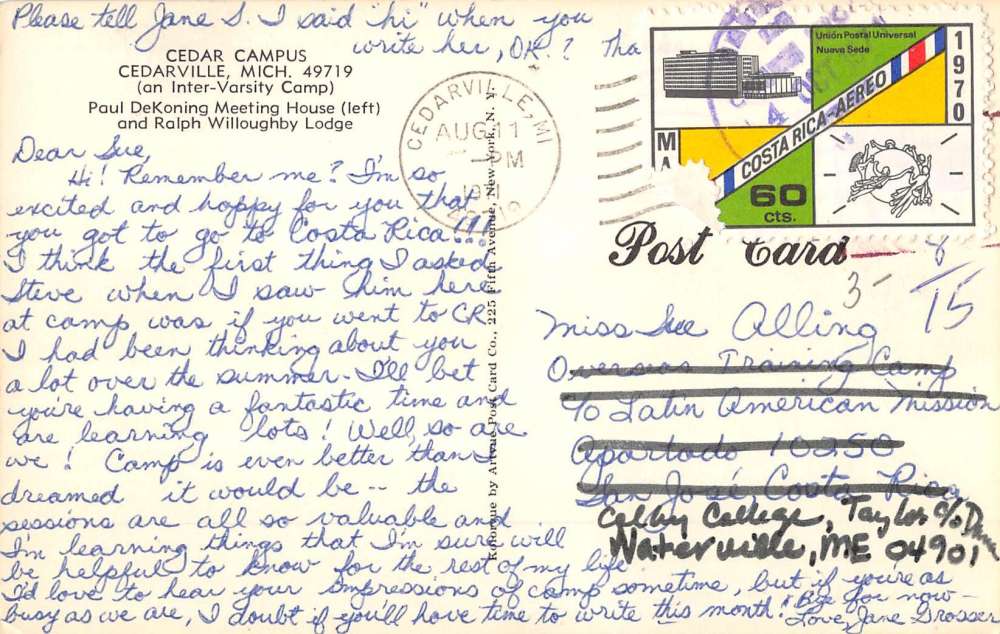 Please tell Jane S. I said "hi" when you
write her, OK? Tha
CEDAR CAMPUS
CEDARVILLE, MICH. 49719
(an Inter-Varsity Camp)
Paul DeKoning Meeting House (left)
and Ralph Willoughby Lodge
Dear Sue,
Hi! Remember me? I'm so
excited and happy for you that
you got to go to Costa Rica!!!
I think the first thing I asked
Steve when I saw him here
at camp was if you went to CR.
I had been thinking about you
a lot over the summer. I'll bet
you're having a fantastic time and
are learning lots! Well, so are
we! Camp is even better than I
dreamed it would be -- the
sessions are all so valuable and
I'm learning things that I'm sure will
be helpful to know for the rest of my life
I'd love to hear your impressions of camp sometime, but if you're as
busy as we are, I doubt if you'll have time to write this month! Bye for now -
Love, Jane Grosser
Kolorvue by Artvue Post Card Co., 225 Fifth Avenue, New York, N. Y.
CEDARVILLE, MI
AUG 11
PM
1971
Unión Postal Universal
Nueva Sede
1970
COSTA RICA-AEREO
MA
60
cts.
Post Card
8
3-
15
Miss Sue Alling
Overseas Training Camp
c/o Latin American Mission
Apartado 10250
San José, Costa Rica
Colby College, Taylor c/o Dana
Waterville, ME 04901